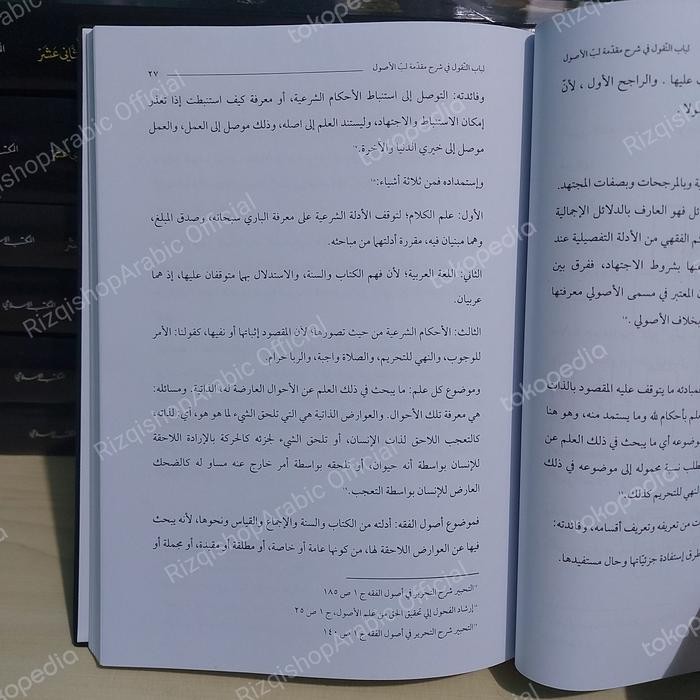 لباب النقول في شرح مقدمة لب الأصول
٢٧
وفائدته: التوصل إلى استنباط الأحكام الشرعية، أو معرفة كيف استنبطت إذا تعذر
إمكان الاستنباط والاجتهاد، وليستند العلم إلى اصله، وذلك موصل إلى العمل، والعمل
موصل إلى خيري الدنيا والآخرة.
وإستمداده فمن ثلاثة أشياء:
الأول: علم الكلام؛ لتوقف الأدلة الشرعية على معرفة الباري سبحانه، وصدق المبلغ،
وهما مبنيان فيه، مقررة أدلتهما من مباحثه.
الثاني: اللغة العربية؛ لأن فهم الكتاب والسنة، والاستدلال بهما متوقفان عليها، إذ هما
عربيان.
الثالث: الأحكام الشرعية من حيث تصورها؛ لأن المقصود إثباتها أو نفيها، كقولنا: الأمر
للوجوب، والنهي للتحريم، والصلاة واجبة، والربا حرام.
وموضوع كل علم: ما يبحث في ذلك العلم عن الأحوال العارضة له، الذاتية. ومسائله:
هي معرفة تلك الأحوال. والعوارض الذاتية هي التي تلحق الشيء لما هو هو، أي: لذاته،
كالتعجب اللاحق لذات الإنسان، أو تلحق الشيء لجزئه كالحركة بالإرادة اللاحقة
للإنسان بواسطة أنه حيوان، أو تلحقه بواسطة أمر خارج عنه مساو له كالضحك
العارض للإنسان بواسطة التعجب.
فموضوع أصول الفقه: أدلته من الكتاب والسنة والإجماع والقياس ونحوها، لأنه يبحث
فيها عن العوارض اللاحقة لها، من كونها عامة أو خاصة، أو مطلقة أو مقيدة، أو مجملة أو
التحبير شرح التحرير في أصول الفقه ج ١ ص ١٨٥
إرشاد الفحول إلي تحقيق الحق من علم الأصول، ج ١ ص ٢٥
التحبير شرح التحرير في أصول الفقه ج ١ ص ١٤٠
لباب النقول في شرح مقدمة لب الأصول
عليها . والراجح الأول ، لأن
ولا.
ة وبالمرجحات وبصفات المجتهد.
ئل فهو العارف بالدلائل الإجمالية
لم الفقهي من الأدلة التفصيلية عند
بها بشروط الاجتهاد، ففرق بين
المعتبر في مسمى الأصولي معرفتها
بخلاف الأصولي .
لمادئه ما يتوقف عليه المقصود بالذات
علم بأحكام لله وما يستمد منه، وهو هنا
وضوعه أي ما يبحث في ذلك العلم عن
طلب نسبة محموله إلى موضوعه في ذلك
النهي للتحريم كذلك.
ت من تعريفه وتعريف أقسامه، وفائدته:
طرق إستفادة جزئياتها وحال مستفيدها.
الثاني عشر
RizqishopArabic Official
tokopedia